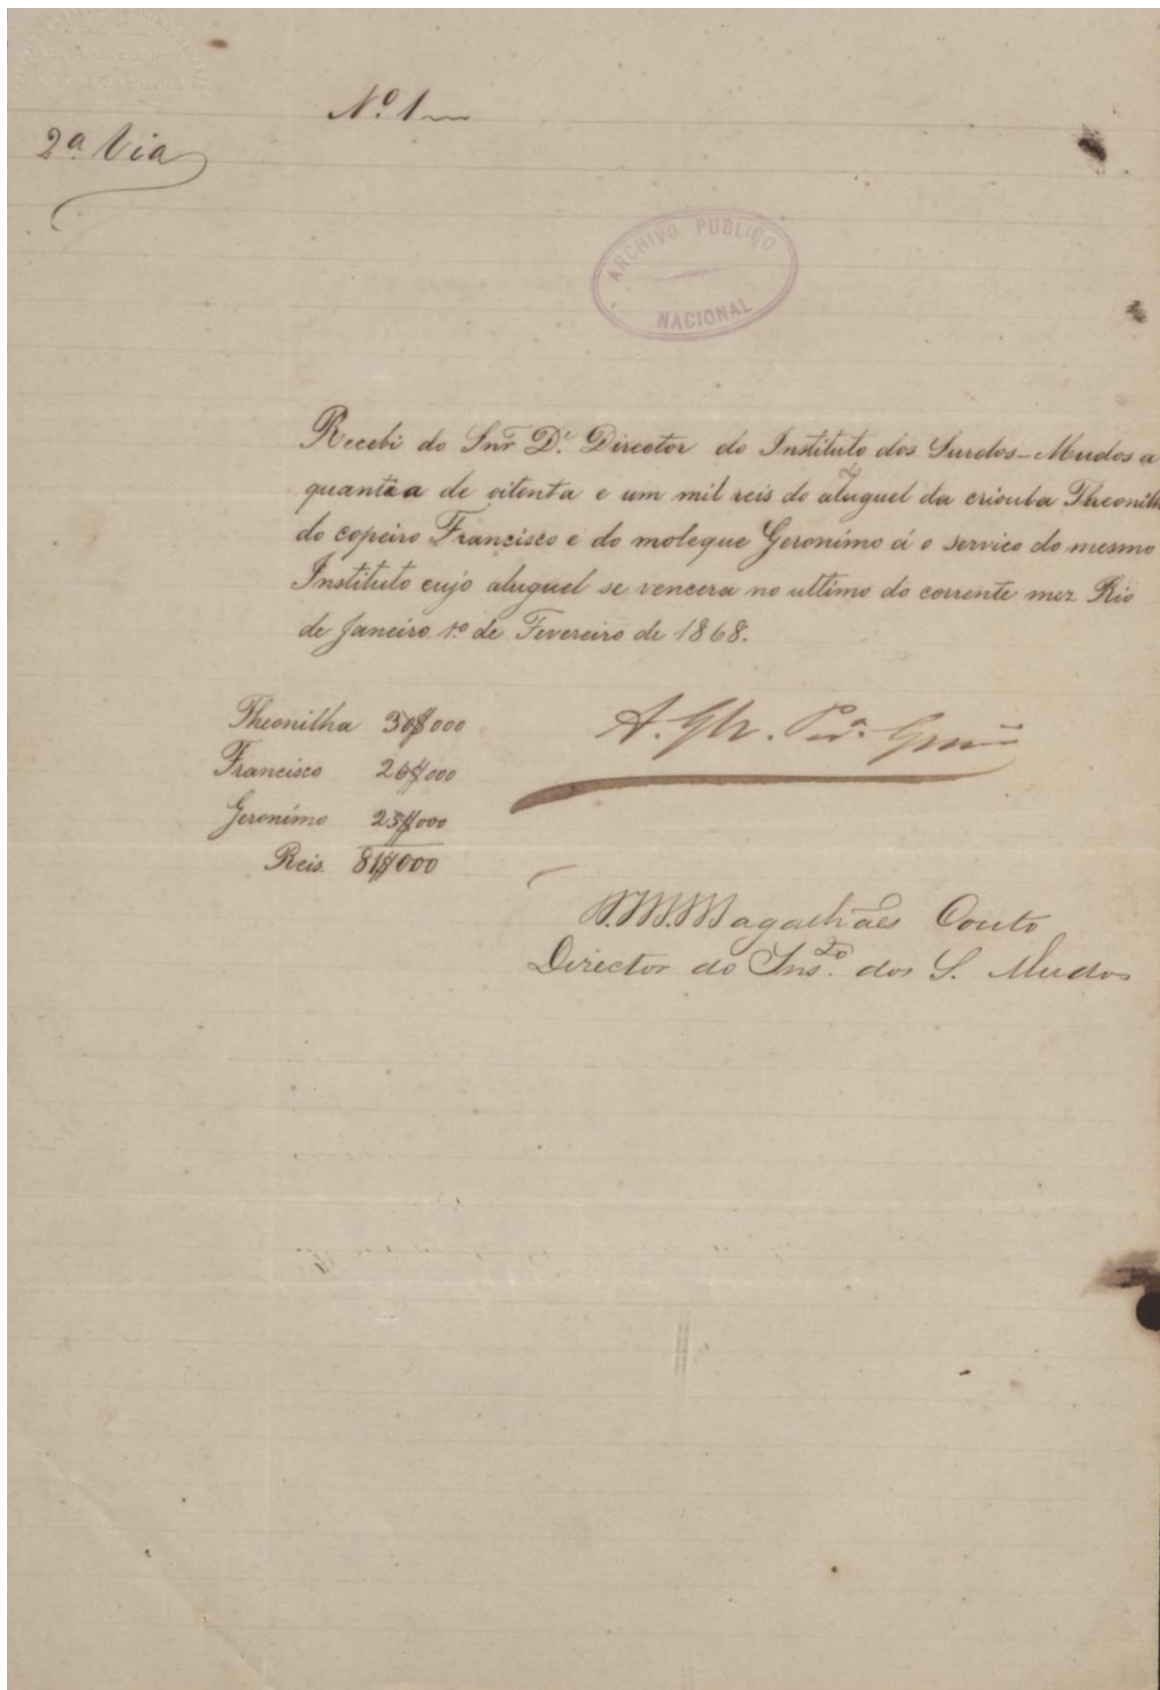 Nº 1
2ª Via
ARCHIVO PUBLICO
NACIONAL
Recebi do Snr Dr. Director do Instituto dos Surdos-Mudos a
quantia de oitenta e um mil reis do aluguel da crioula
do copeiro Francisco e do moleque Geronimo á o servico do mesmo
Instituto cujo aluguel se vencera no ultimo do corrente mez Rio
de Janeiro 1º de Fevereiro de 1868.
Theonilha 30$000
Francisco 26$000
Geronimo 25$000
Reis. 81$000
A.
Magalhães Couto
Director do Insto. dos S. Mudos